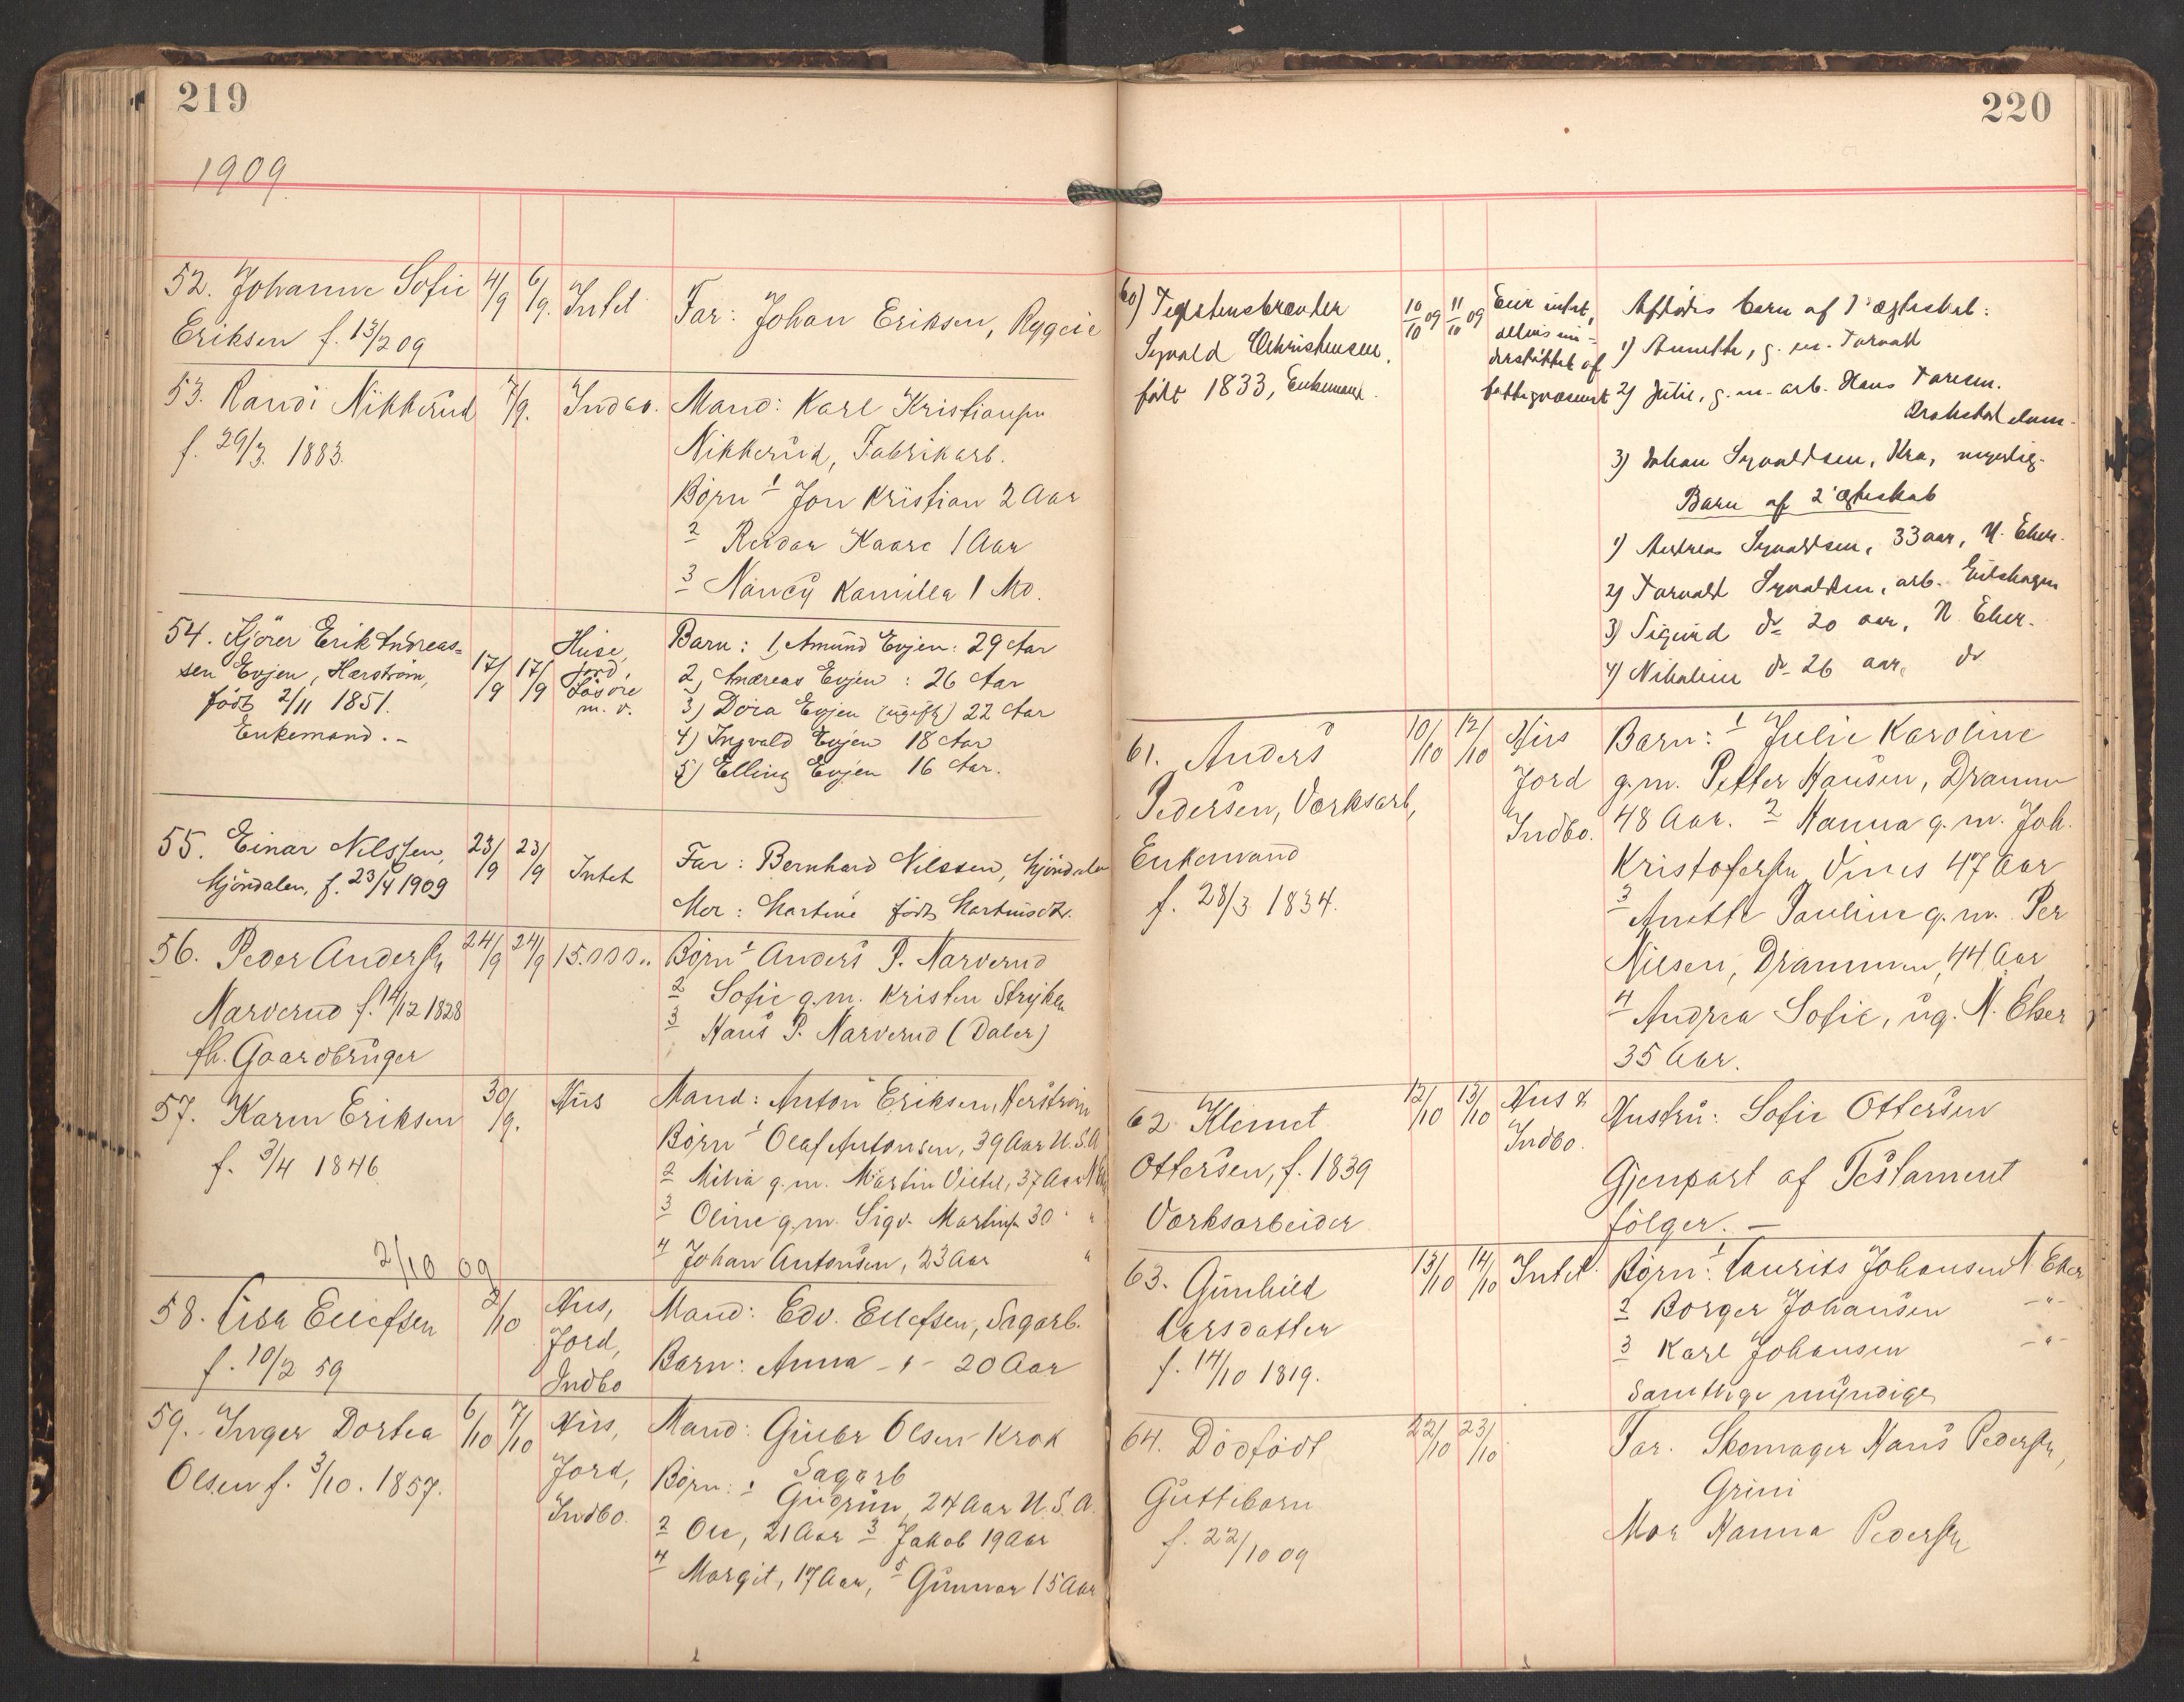 219
1909
52. Johanne Sofie 4/9 6/9. Intet Far: Johan Eriksen, Ryggeie
Eriksen f. 13/2 09
53. Randi Nikkerud 7/9. Indbo. Mand: Karl Kristiansen
f. 29/3. 1883. Nikkerud, Fabrikarb.
Børn 1 Jon Kristian 2 Aar
2 Reidar Kaare 1 Aar
3 Nancy Kamilla 1 Md.
54. Kjører Erik Andreas= 17/9 17/9 Huse, Barn: 1, Amund Evjen: 29 Aar
sen Evjen, Hærstrøm, Jord, 2, Andreas Evjen: 26 Aar
født 2/11 1851. Løsøre 3) Dora Evjen (ugift) 22 Aar
Enkemand. - m. v. 4) Ingvald Evjen 18 Aar
5) Elling Evjen 16 Aar.
55. Einar Nilssen, 23/9 23/9 Intet Far: Bernhard Nilssen, Mjøndalen
Mjøndalen, f. 23/4 1909 Mor: Martine født Martinsdtr.
56. Peder Andersen 24/9 24/9 15.000,, Børn 1 Anders P. Narverud
Narverud f. 14/12 1828 2 Sofie g.m. Kristen Stryken
fh. Gaardbruger 3 Hans P. Narverud (Daler)
57. Karen Eriksen 30/9. Hus Mand: Anton Eriksen, Herstrøm
f. 3/4 1846 Børn 1 Olaf Antonsen, 39 Aar U.S.A
2 Milia g.m. Martin 37 Aar
3 Oline g.m. Sigv. Martinsen 30 " "
4 Johan Antonsen, 23 Aar "
2/10 09
58. Lisa Ellefsen 2/10 Hus, Mand: Edv. Ellefsen, Sagarb.
f. 10/2 59 Jord, Barn: Anna -"- 20 Aar
Indbo
59. Inger Dortea 6/10 7/10 Hus, Mand: Gulbr Olsen Krok
Olsen f. 3/10. 1857. Jord, Sagarb
Indbo. Børn: 1 Gudrun, 24 Aar U.S.A.
2 Ole, 21 Aar 3 Jakob 19 Aar
4 Margit, 17 Aar, 5 Gunnar 15 Aar
220
60) Teglstensbrænder 10/10 09 11/10 09 Eier intet, Afdødes barn af 1' ægteskab:
Syvald Christensen, alene un- 1) Annette, g. m. Torvald
født 1833, Enkemand. derstøttet af 2) Julie, g.m. arb. Hans Toresen.
fattigvæsenet
3) Johan Syvaldsen, Kra, myndig.
Barn af 2' ægteskab
1) Andreas Syvaldsen, 33 aar, N. Eker.
2) Torvald Syvaldsen, arb.
3) Sigurd do 20 aar, N. Eker.
4) Nikoline do 26 aar. do
61. Anders 10/10 12/10 Hus Barn: 1 Julie Karoline
Pedersen, Værksarb, Jord g.m. Petter Hansen, Drammen
Enkemand Indbo. 48 Aar. 2 Hanna g.m. Joh.
f. 28/3 1834. Kristofersen Vines 47 Aar
3 Anette Pauline g.m. Per
Nilsen, Drammen, 44 Aar
4 Andrea Sofie, ug. N. Eker
35 Aar.
62 Klemet 12/10 13/10 Hus & Hustru: Sofie Ottersen
Ottersen, f. 1839 Indbo. Gjenpart af Testament
Værksarbeider følger. —
63. Gunhild 13/10 14/10 Intet. Børn: 1 Laurits Johansen N. Eker
Larsdatter 2 Borger Johansen -"-
f. 14/10 1819. 3 Karl Johansen -"-
Samtlige myndige
64. Dødfødt 22/10 23/10 Far. Skomager Hans Pedersen,
Guttebarn Grini
f. 22/10 09 Mor Hanna Pedersen